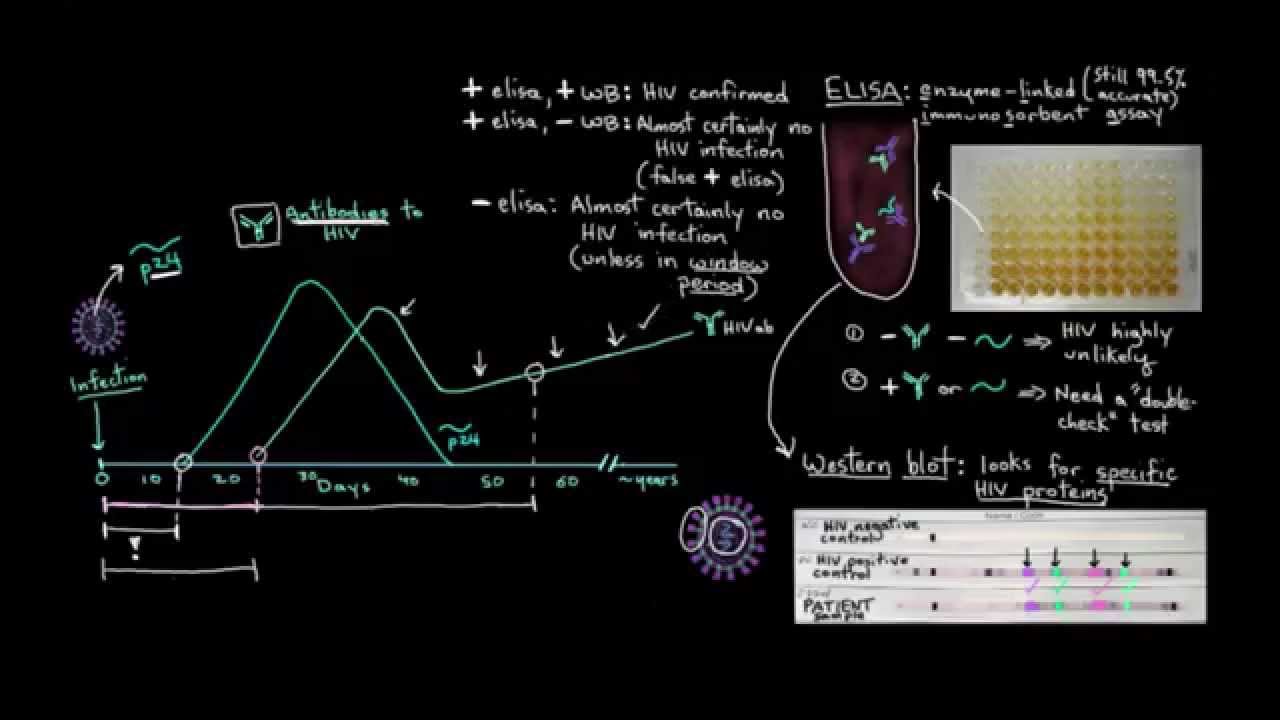 + elisa, + WB: HIV confirmed
+ elisa, - WB: Almost certainly no
HIV infection
(false + elisa)
- elisa: Almost certainly no
HIV infection
(unless in window
period)
ELISA: enzyme-linked (still 99.5%
accurate)
immunosorbent assay
Antibodies to
HIV
p24
Infection
HIV ab
p24
0 10 20 30 40 50 60 ~years
Days
!
① - - ⇒ HIV highly
unlikely
② + or ⇒ Need a "double-
check" test
Western blot: looks for specific
HIV proteins
HIV negative
control
HIV positive
control
PATIENT
sample